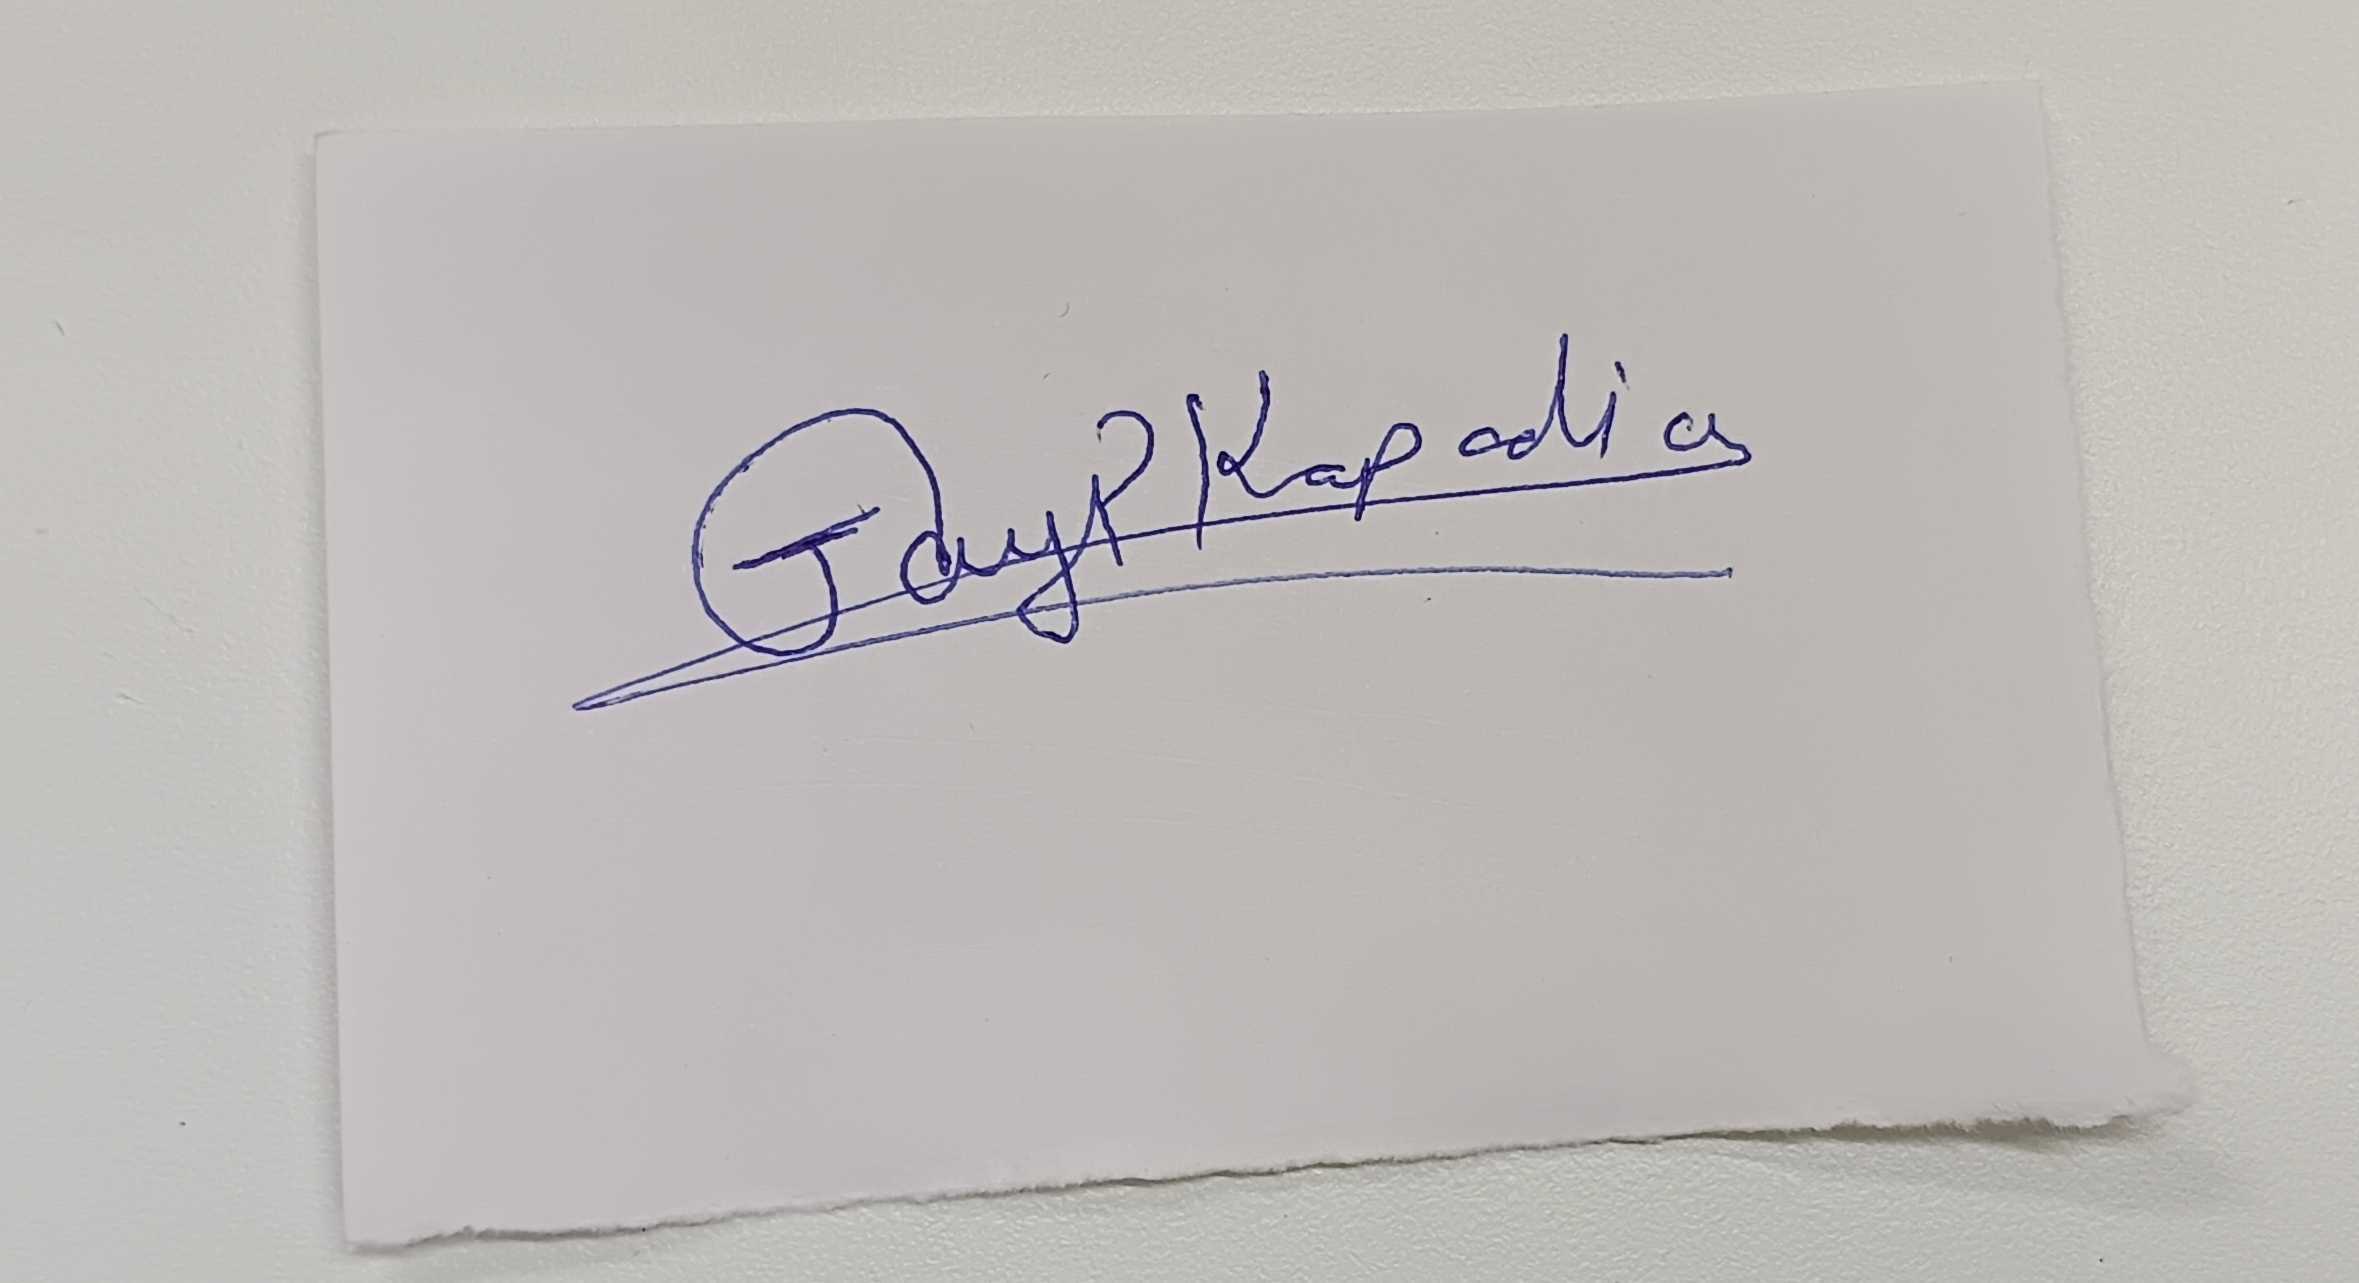 Jay P Kapadia